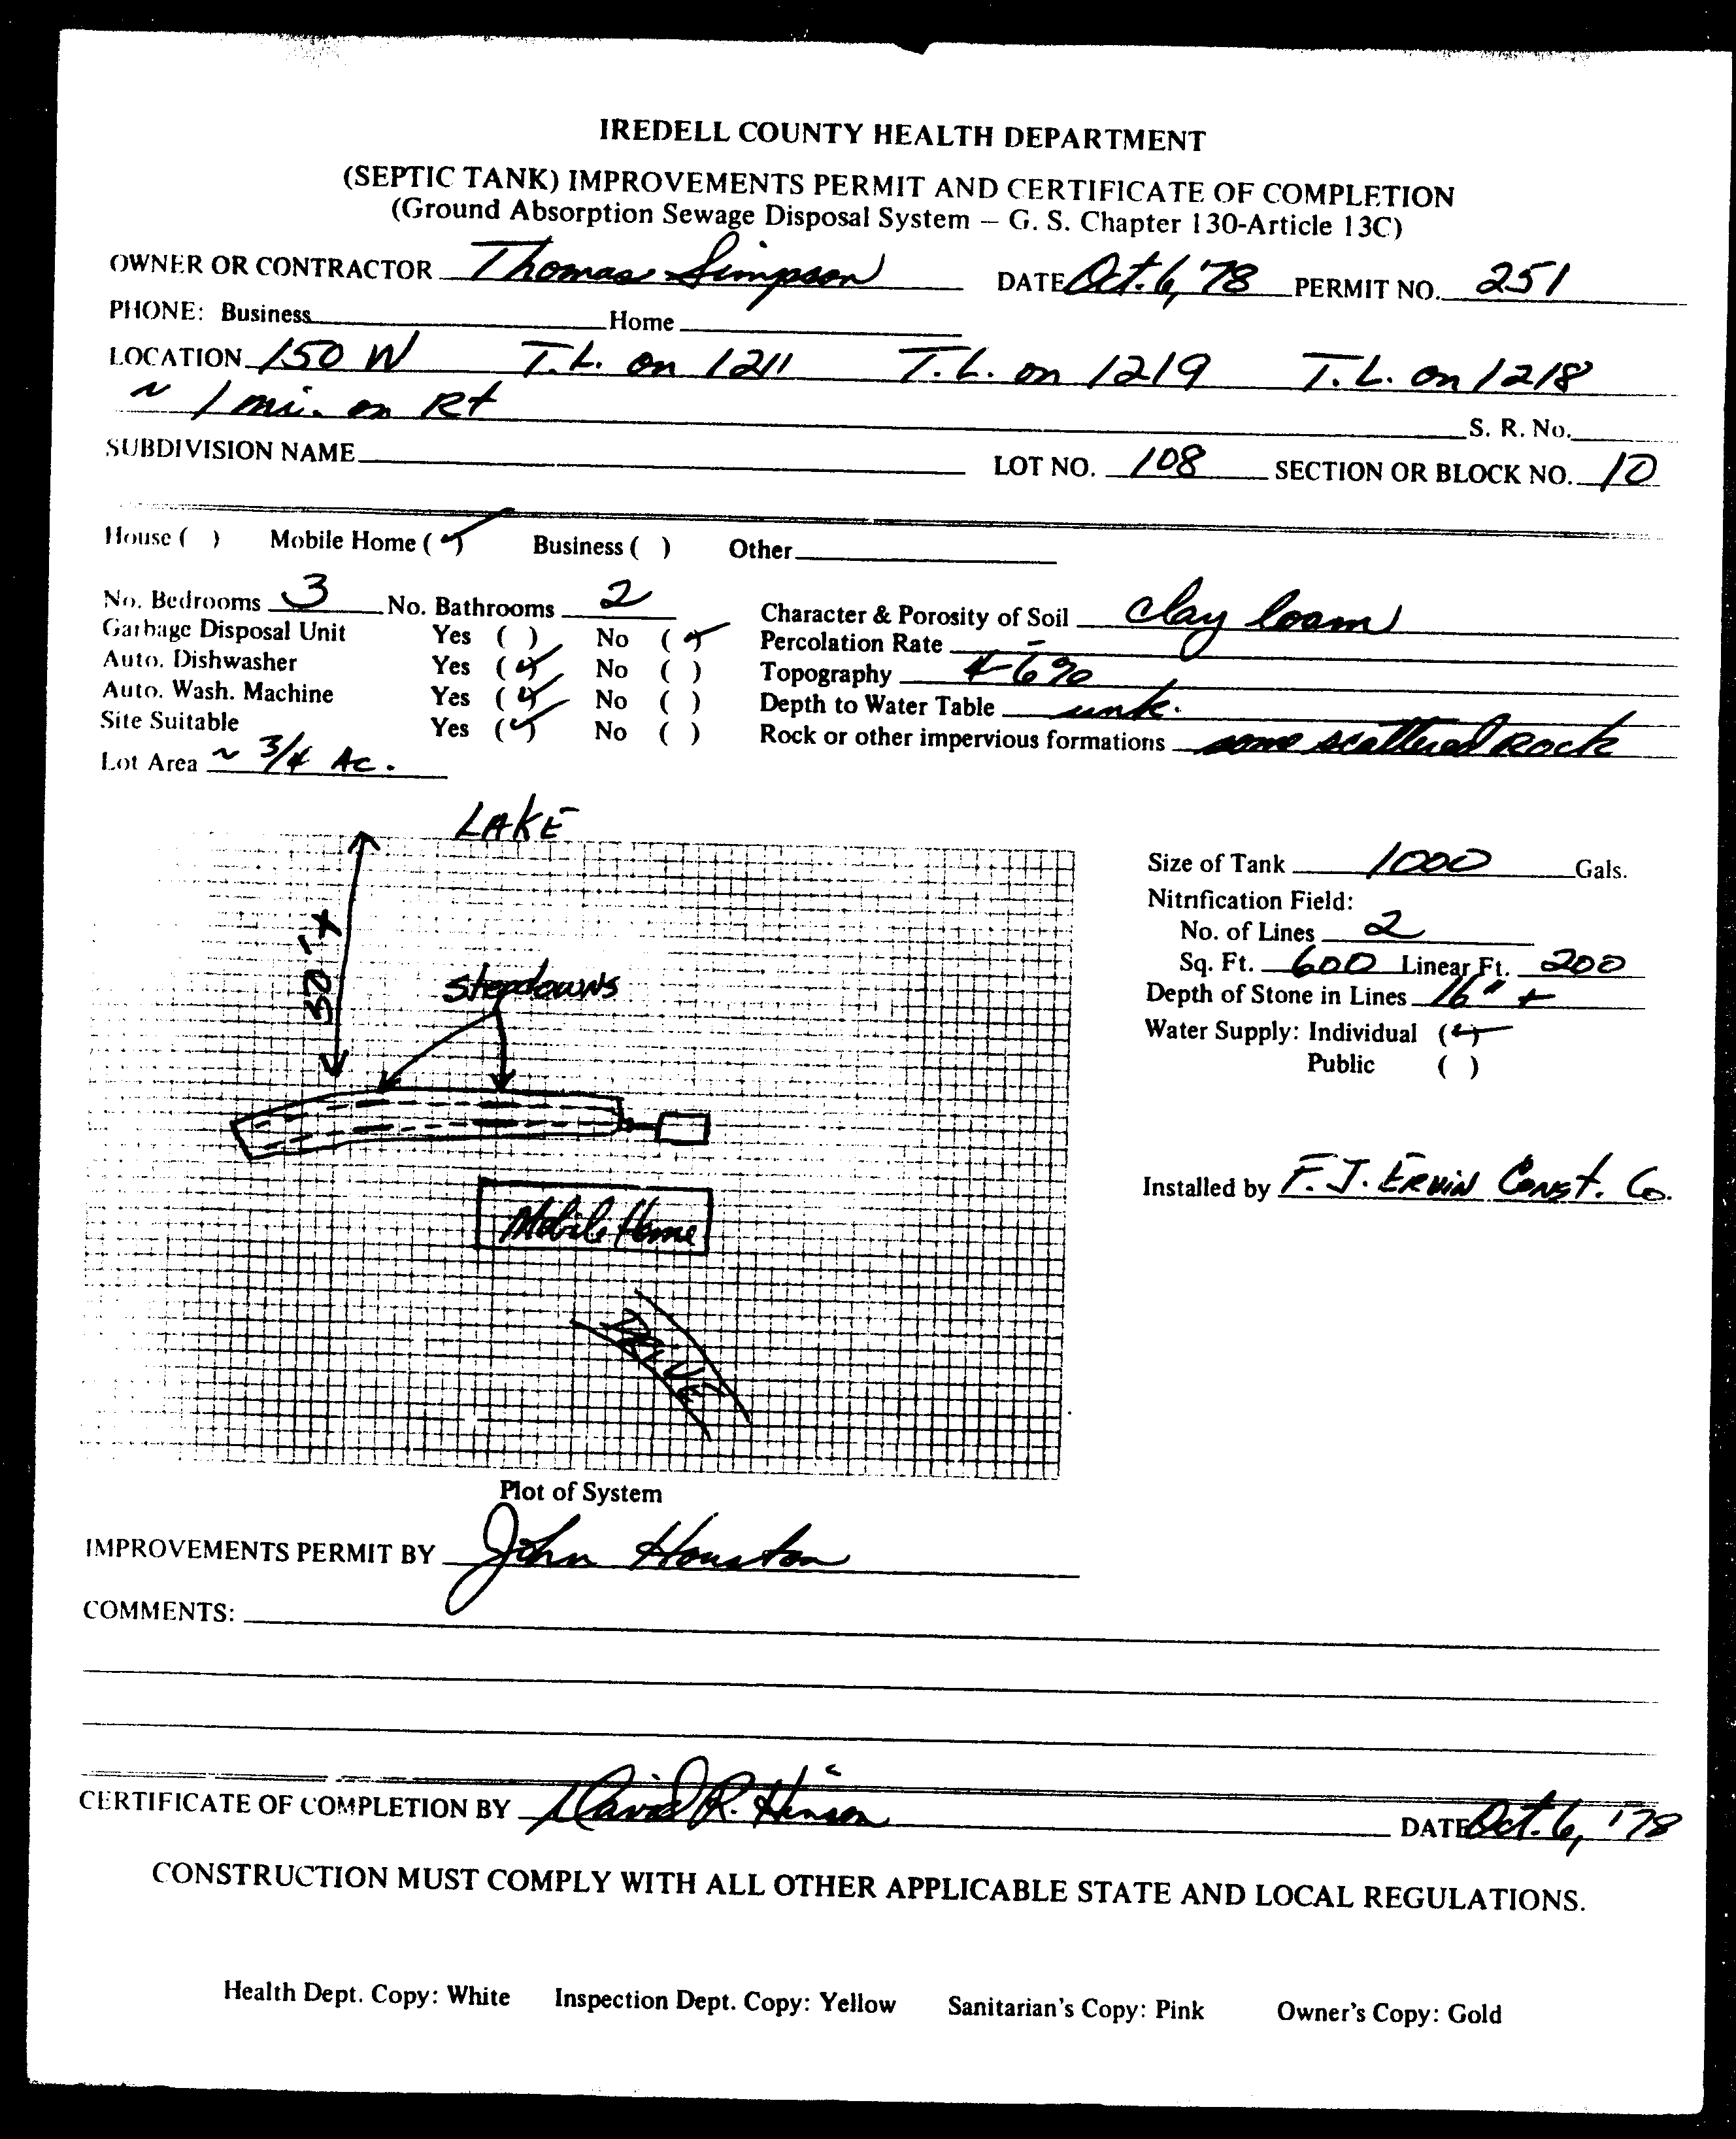 IREDELL COUNTY HEALTH DEPARTMENT
(SEPTIC TANK) IMPROVEMENTS PERMIT AND CERTIFICATE OF COMPLETION
(Ground Absorption Sewage Disposal System – G. S. Chapter 130-Article 13C)
OWNER OR CONTRACTOR Thomas Simpson DATE Oct. 6, '78 PERMIT NO. 251
PHONE: Business Home
LOCATION 150 W T.L. on 1211 T.L. on 1219 T.L. on 1218
~ 1 mi. on Rt S. R. No.
SUBDIVISION NAME LOT NO. 108 SECTION OR BLOCK NO. 10
House ( ) Mobile Home (✓) Business ( ) Other
No. Bedrooms 3 No. Bathrooms 2 Character & Porosity of Soil clay loam
Garbage Disposal Unit Yes ( ) No (✓) Percolation Rate –
Auto. Dishwasher Yes (✓) No ( ) Topography 4-6%
Auto. Wash. Machine Yes (✓) No ( ) Depth to Water Table unk.
Site Suitable Yes (✓) No ( ) Rock or other impervious formations some scattered Rock
Lot Area ~ 3/4 Ac.
LAKE
Size of Tank 1000 Gals.
Nitrification Field:
No. of Lines 2
Sq. Ft. 600 Linear Ft. 200
Depth of Stone in Lines 16" +
Water Supply: Individual (✓)
Public ( )
50'+
stepdowns
Installed by F. J. Ervin Const. Co.
Mobile Home
DRIVE
Plot of System
IMPROVEMENTS PERMIT BY John Houston
COMMENTS:
CERTIFICATE OF COMPLETION BY David R. Hinson DATE Oct. 6, '78
CONSTRUCTION MUST COMPLY WITH ALL OTHER APPLICABLE STATE AND LOCAL REGULATIONS.
Health Dept. Copy: White Inspection Dept. Copy: Yellow Sanitarian's Copy: Pink Owner's Copy: Gold